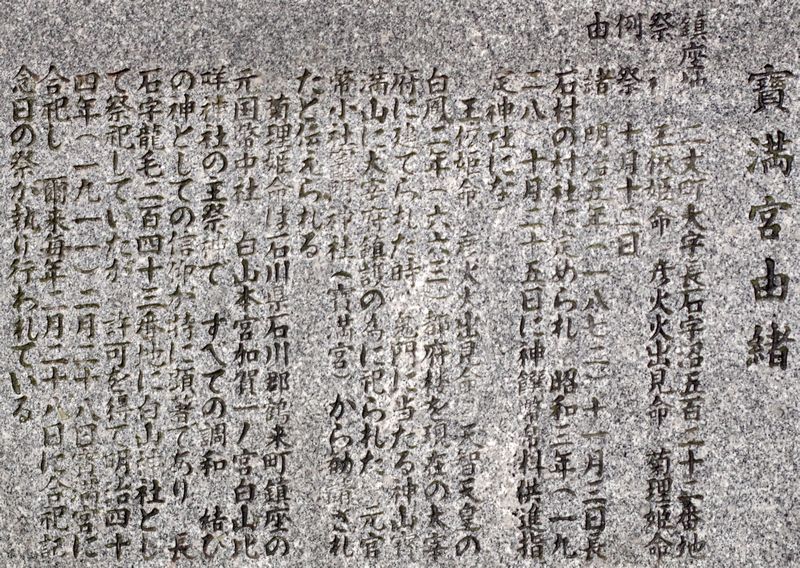 寶満宮由緒
鎮座地 二丈町大字長石字沼五百二十二番地
祭神 玉依姫命 彦火火出見命 菊理姫命
例祭 十月十二日
由緒 明治五年(一八七二)十一月三日長
石村の村社に定められ 昭和三年(一九
二八)十月二十五日に神饌幣帛料供進指
定神社にな
玉依姫命 彦火火出見命 天智天皇の
白鳳二年(六六三)都府楼を現在の太宰
府に建てられた時 竈門に当たる神山寶
満山に大宰府鎮護の為に祀られた 元官
幣小社竈門神社(寶満宮)から勧請され
たと伝えられる
菊理姫命は石川県石川郡鶴来町鎮座の
元国幣中社 白山本宮加賀一ノ宮白山比
咩神社の主祭神で すべての調和 結び
の神としての信仰が特に顕著であり 長
石字龍毛二百四十三番地に白山神社とし
て祭祀していたが 許可を得て明治四十
四年(一九一一)二月二十八日寶満宮に
合祀し 爾来毎年二月二十八日に合祀記
念日の祭が執り行われている